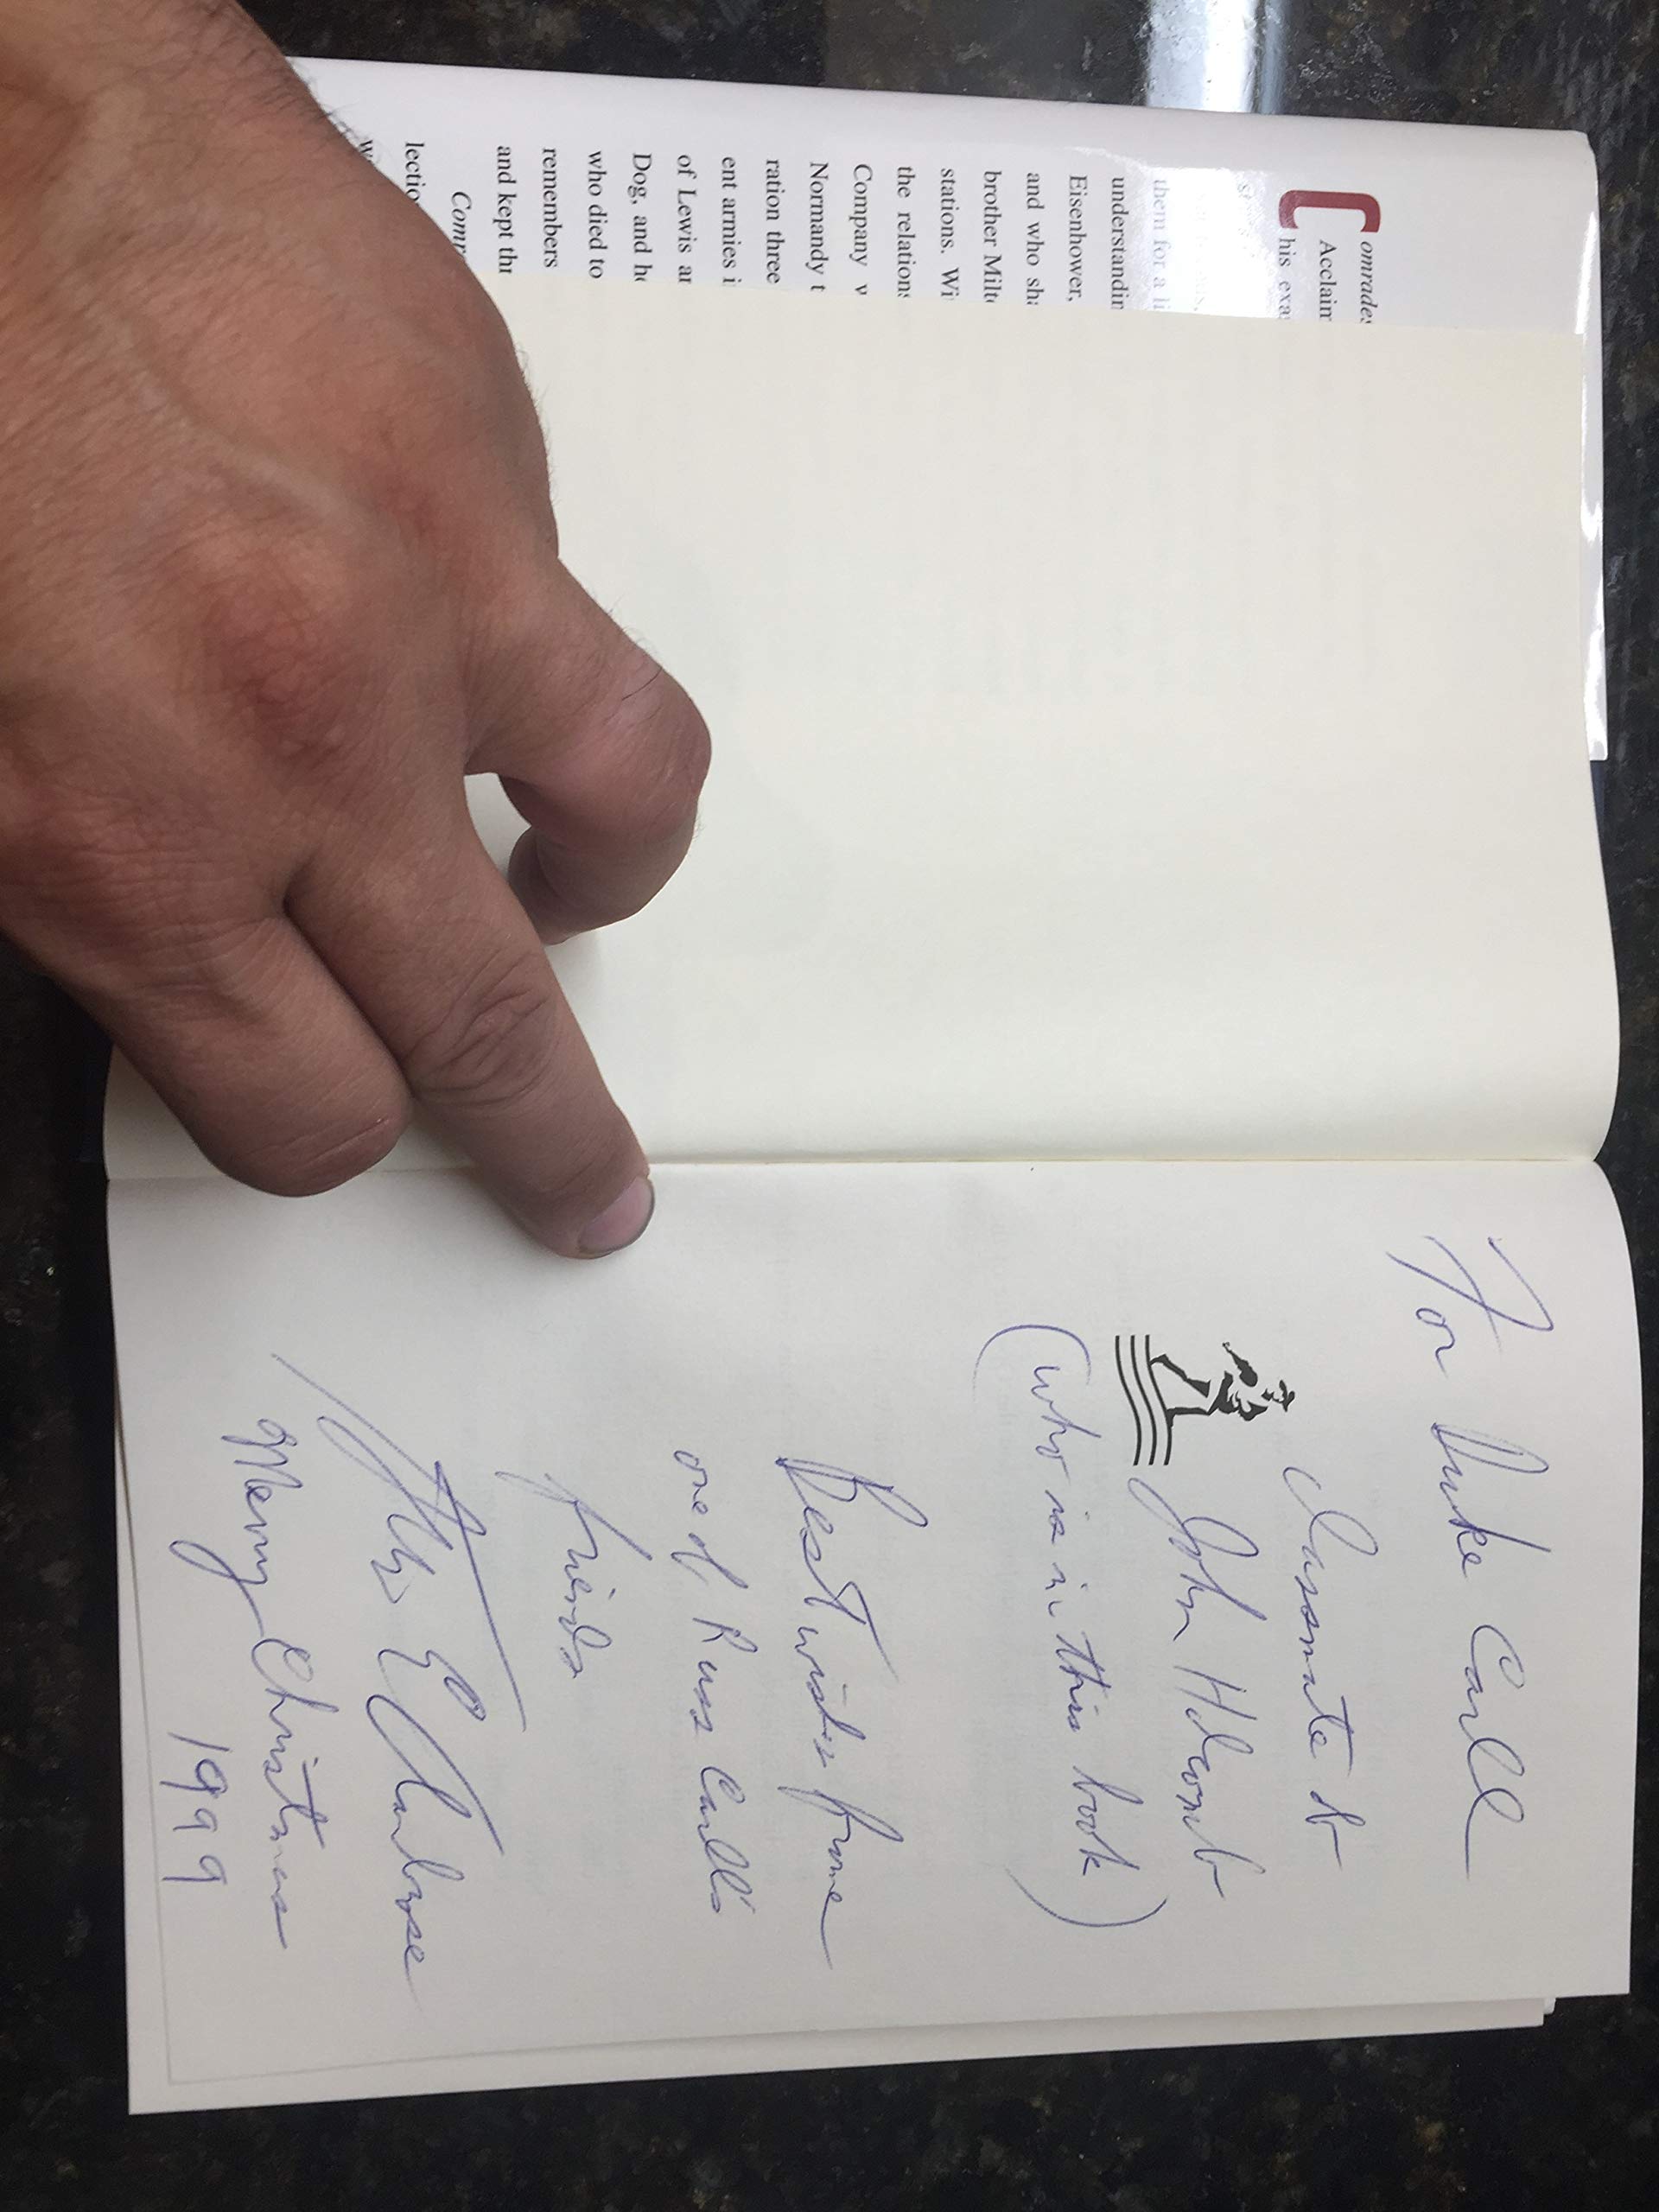 omrades
Acclaim
his exa
them for a li
understandin
Eisenhower,
and who sha
brother Milt
stations. Wi
the relations
Company v
Normandy t
ration three
ent armies i
of Lewis an
Dog, and h
who died to
remembers
and kept thr
Comr
lectio
For Duke Carll
Classmate of
John Holcomb
(who is in this book)
Best wishes from
one of Russ Carll's
friends
Stephen E Ambrose
Merry Christmas
1999